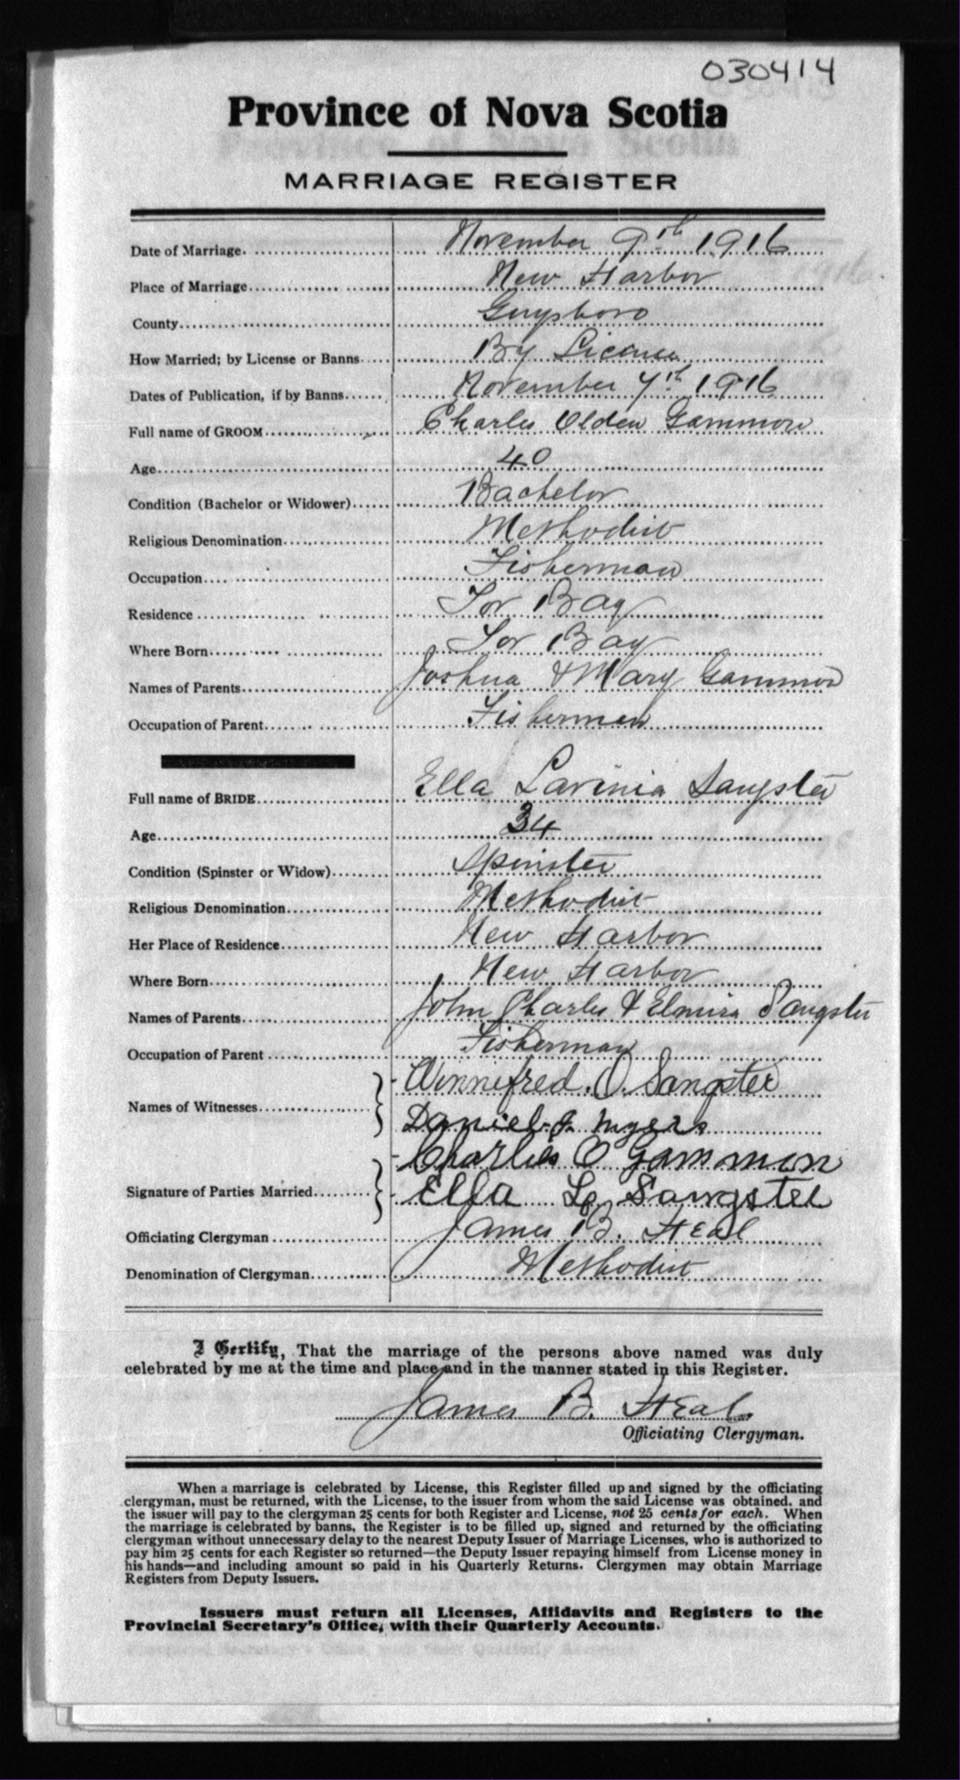 030414
Province of Nova Scotia
MARRIAGE REGISTER
Date of Marriage. November 9th 1916
Place of Marriage New Harbor
County Guysboro
How Married; by License or Banns By Licence
Dates of Publication, if by Banns November 7th 1916
Full name of GROOM Charles Olden Gammon
Age 40
Condition (Bachelor or Widower) Bachelor
Religious Denomination Methodist
Occupation Fisherman
Residence Tor Bay
Where Born Tor Bay
Names of Parents Joshua & Mary Gammon
Occupation of Parent Fisherman
Full name of BRIDE Ella Lavinia Sangster
Age 34
Condition (Spinster or Widow) Spinster
Religious Denomination Methodist
Her Place of Residence New Harbor
Where Born New Harbor
Names of Parents John Charles & Elmira Sangster
Occupation of Parent Fisherman
Names of Witnesses Winnifred. O. Sangster
Daniel J. Myers
Signature of Parties Married Charles O Gammon
Ella L. Sangster
Officiating Clergyman James B. Heal
Denomination of Clergyman Methodist
I Certify, That the marriage of the persons above named was duly
celebrated by me at the time and place and in the manner stated in this Register.
James B. Heal.
Officiating Clergyman.
When a marriage is celebrated by License, this Register filled up and signed by the officiating
clergyman, must be returned, with the License, to the issuer from whom the said License was obtained. and
the issuer will pay to the clergyman 25 cents for both Register and License, not 25 cents for each. When
the marriage is celebrated by banns, the Register is to be filled up, signed and returned by the officiating
clergyman without unnecessary delay to the nearest Deputy Issuer of Marriage Licenses, who is authorized to
pay him 25 cents for each Register so returned—the Deputy Issuer repaying himself from License money in
his hands—and including amount so paid in his Quarterly Returns. Clergymen may obtain Marriage
Registers from Deputy Issuers.
Issuers must return all Licenses, Affidavits and Registers to the
Provincial Secretary's Office, with their Quarterly Accounts.